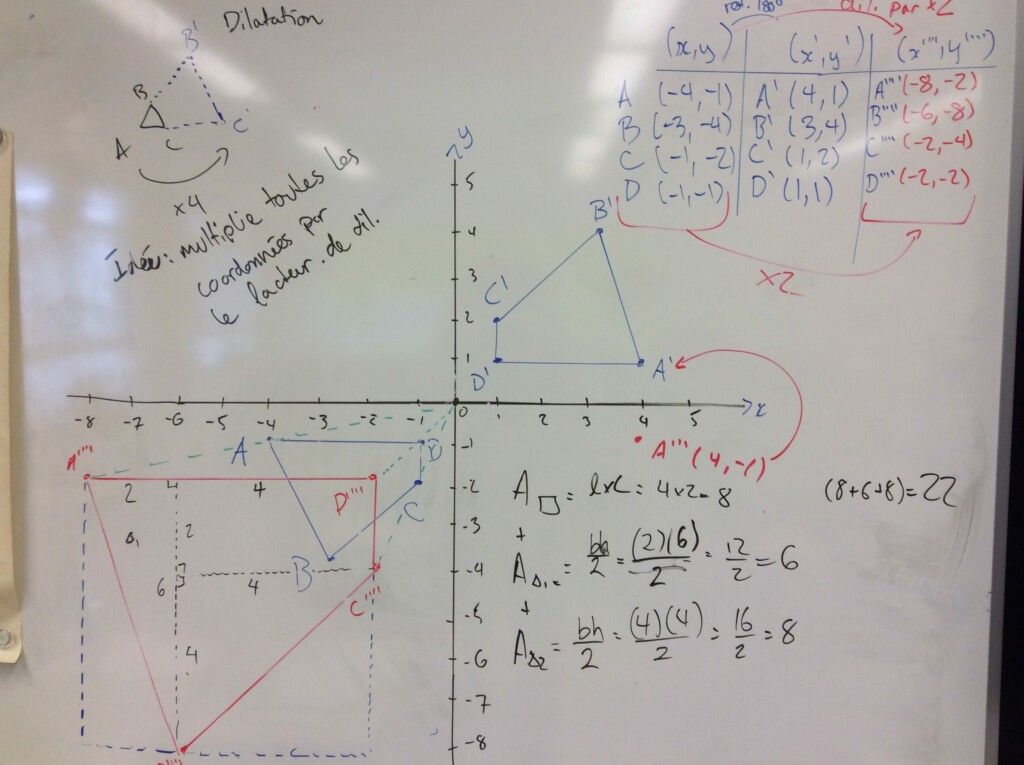 Dilatation
B'
B
A
C
C'
x4
Idée: multiplie toutes les
coordonnées par
le facteur de dil.
rot. 180° dil. par x2
(x,y) (x',y') (x'''',y'''')
A (-4,-1) A' (4,1) A'''' (-8,-2)
B (-3,-4) B' (3,4) B'''' (-6,-8)
C (-1,-2) C' (1,2) C'''' (-2,-4)
D (-1,-1) D' (1,1) D'''' (-2,-2)
x2
y
5
4
3
2
1
B'
C'
D'
A'
-8 -7 -6 -5 -4 -3 -2 -1 0 1 2 3 4 5 x
-1
-2
-3
-4
-5
-6
-7
-8
A'''' (4,-1)
A
D
C
B
A''''
D''''
C''''
2 4
Δ1 2
6 4
4
A□ = lxL = 4x2=8 (8+6+8)=22
+
AΔ1 = bh/2 = (2)(6)/2 = 12/2 = 6
+
AΔ2 = bh/2 = (4)(4)/2 = 16/2 = 8